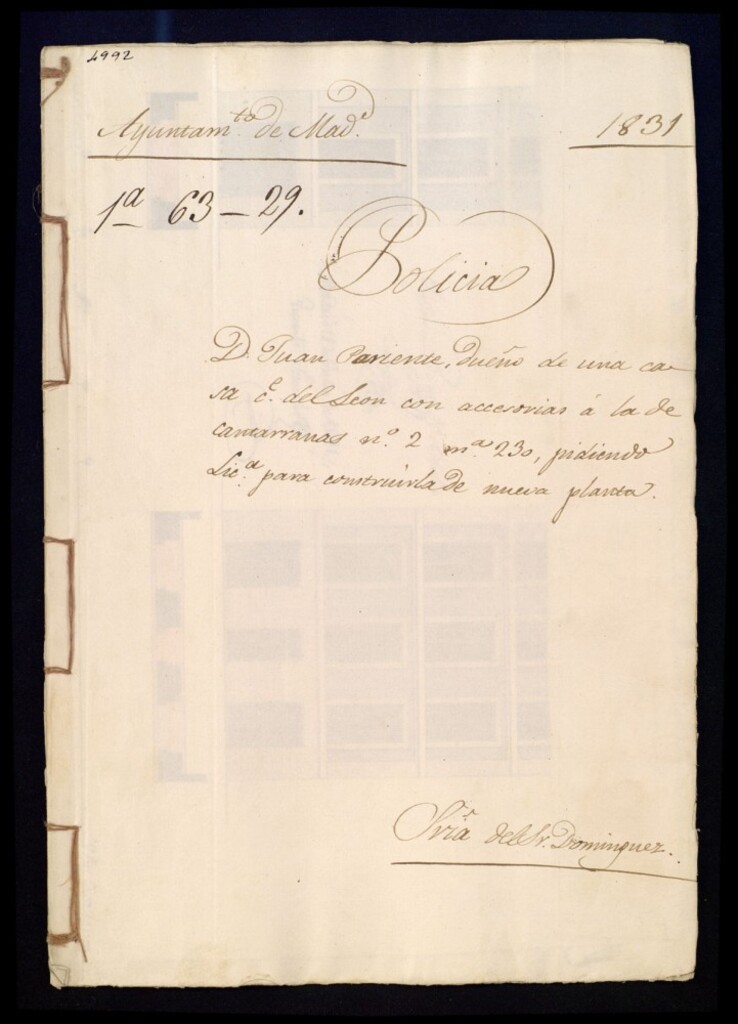 4992
Ayuntam.to de Mad.d
1831
1a 63-29.
Policia
D. Juan Pariente, dueño de una ca-
sa c.e del Leon con accesorias á la de
cantarranas n.o 2 m.a 230, pidiendo
Lic.a para construirla de nueva planta.
Sria del Sr. Dominguez.